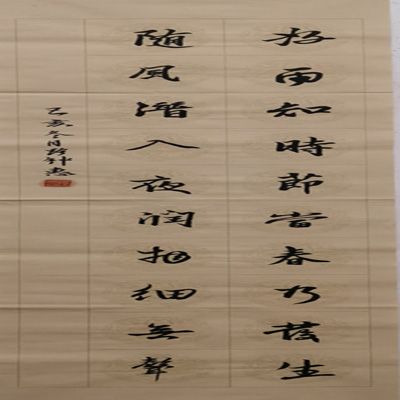 好雨知時節當春乃發生
随風潛入夜润物細無聲
己亥冬月